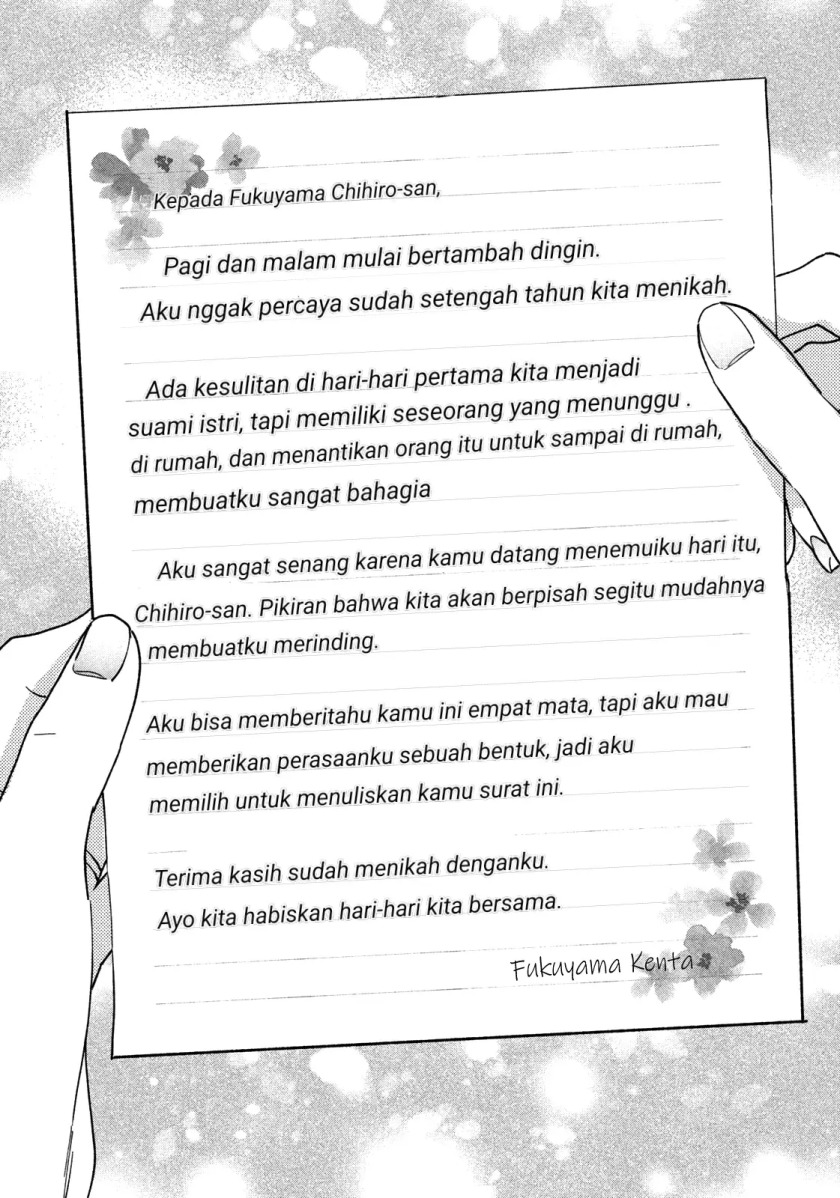 Kepada Fukuyama Chihiro-san,
Pagi dan malam mulai bertambah dingin.
Aku nggak percaya sudah setengah tahun kita menikah.
Ada kesulitan di hari-hari pertama kita menjadi
suami istri, tapi memiliki seseorang yang menunggu .
di rumah, dan menantikan orang itu untuk sampai di rumah,
membuatku sangat bahagia
Aku sangat senang karena kamu datang menemuiku hari itu,
Chihiro-san. Pikiran bahwa kita akan berpisah segitu mudahnya
membuatku merinding.
Aku bisa memberitahu kamu ini empat mata, tapi aku mau
memberikan perasaanku sebuah bentuk, jadi aku
memilih untuk menuliskan kamu surat ini.
Terima kasih sudah menikah denganku.
Ayo kita habiskan hari-hari kita bersama.
Fukuyama Kenta